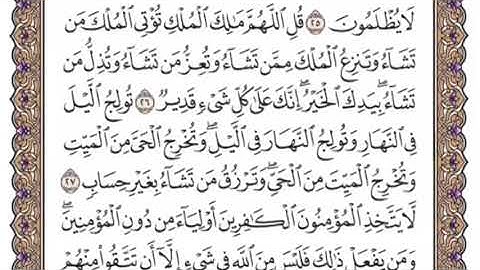 لَا يُظْلَمُونَ ۝٢٥ قُلِ اللَّهُمَّ مَالِكَ الْمُلْكِ تُؤْتِي الْمُلْكَ مَن
تَشَاءُ وَتَنزِعُ الْمُلْكَ مِمَّن تَشَاءُ وَتُعِزُّ مَن تَشَاءُ وَتُذِلُّ مَن
تَشَاءُ ۖ بِيَدِكَ الْخَيْرُ ۖ إِنَّكَ عَلَىٰ كُلِّ شَيْءٍ قَدِيرٌ ۝٢٦ تُولِجُ اللَّيْلَ
فِي النَّهَارِ وَتُولِجُ النَّهَارَ فِي اللَّيْلِ ۖ وَتُخْرِجُ الْحَيَّ مِنَ الْمَيِّتِ
وَتُخْرِجُ الْمَيِّتَ مِنَ الْحَيِّ ۖ وَتَرْزُقُ مَن تَشَاءُ بِغَيْرِ حِسَابٍ ۝٢٧
لَّا يَتَّخِذِ الْمُؤْمِنُونَ الْكَافِرِينَ أَوْلِيَاءَ مِن دُونِ الْمُؤْمِنِينَ ۖ
وَمَن يَفْعَلْ ذَٰلِكَ فَلَيْسَ مِنَ اللَّهِ فِي شَيْءٍ إِلَّا أَن تَتَّقُوا مِنْهُمْ